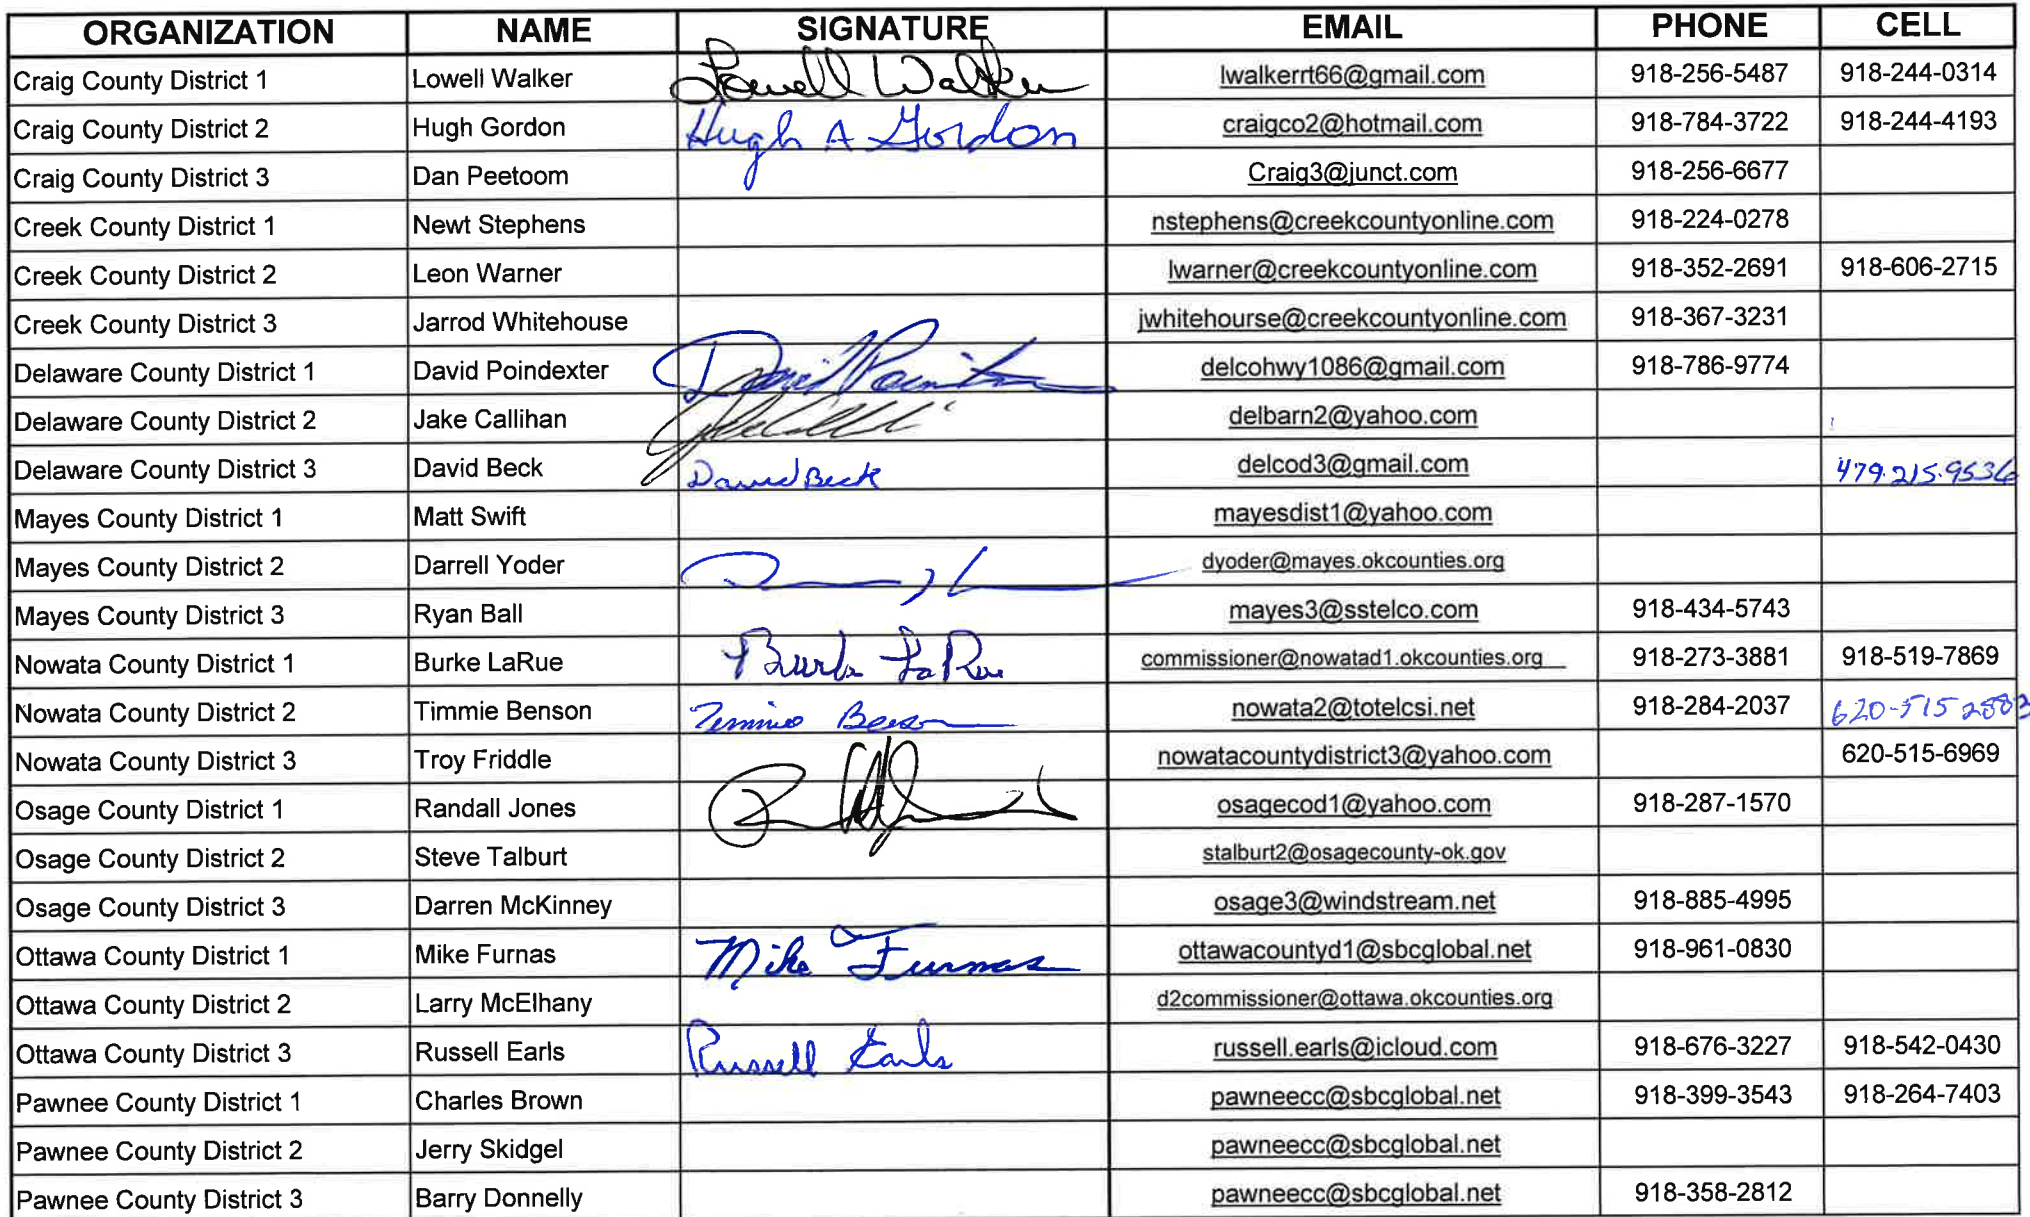 ORGANIZATION NAME SIGNATURE EMAIL PHONE CELL
Craig County District 1 Lowell Walker Lowell Walker lwalkerrt66@gmail.com 918-256-5487 918-244-0314
Craig County District 2 Hugh Gordon Hugh A Gordon craigco2@hotmail.com 918-784-3722 918-244-4193
Craig County District 3 Dan Peetoom Craig3@junct.com 918-256-6677
Creek County District 1 Newt Stephens nstephens@creekcountyonline.com 918-224-0278
Creek County District 2 Leon Warner lwarner@creekcountyonline.com 918-352-2691 918-606-2715
Creek County District 3 Jarrod Whitehouse jwhitehourse@creekcountyonline.com 918-367-3231
Delaware County District 1 David Poindexter David delcohwy1086@gmail.com 918-786-9774
Delaware County District 2 Jake Callihan delbarn2@yahoo.com
Delaware County District 3 David Beck David Beck delcod3@gmail.com 479.215.9536
Mayes County District 1 Matt Swift mayesdist1@yahoo.com
Mayes County District 2 Darrell Yoder dyoder@mayes.okcounties.org
Mayes County District 3 Ryan Ball mayes3@sstelco.com 918-434-5743
Nowata County District 1 Burke LaRue Burke LaRue commissioner@nowatad1.okcounties.org 918-273-3881 918-519-7869
Nowata County District 2 Timmie Benson Timmie Benson nowata2@totelcsi.net 918-284-2037 620-515 2883
Nowata County District 3 Troy Friddle nowatacountydistrict3@yahoo.com 620-515-6969
Osage County District 1 Randall Jones osagecod1@yahoo.com 918-287-1570
Osage County District 2 Steve Talburt stalburt2@osagecounty-ok.gov
Osage County District 3 Darren McKinney osage3@windstream.net 918-885-4995
Ottawa County District 1 Mike Furnas Mike Furnas ottawacountyd1@sbcglobal.net 918-961-0830
Ottawa County District 2 Larry McElhany d2commissioner@ottawa.okcounties.org
Ottawa County District 3 Russell Earls Russell Earls russell.earls@icloud.com 918-676-3227 918-542-0430
Pawnee County District 1 Charles Brown pawneecc@sbcglobal.net 918-399-3543 918-264-7403
Pawnee County District 2 Jerry Skidgel pawneecc@sbcglobal.net
Pawnee County District 3 Barry Donnelly pawneecc@sbcglobal.net 918-358-2812